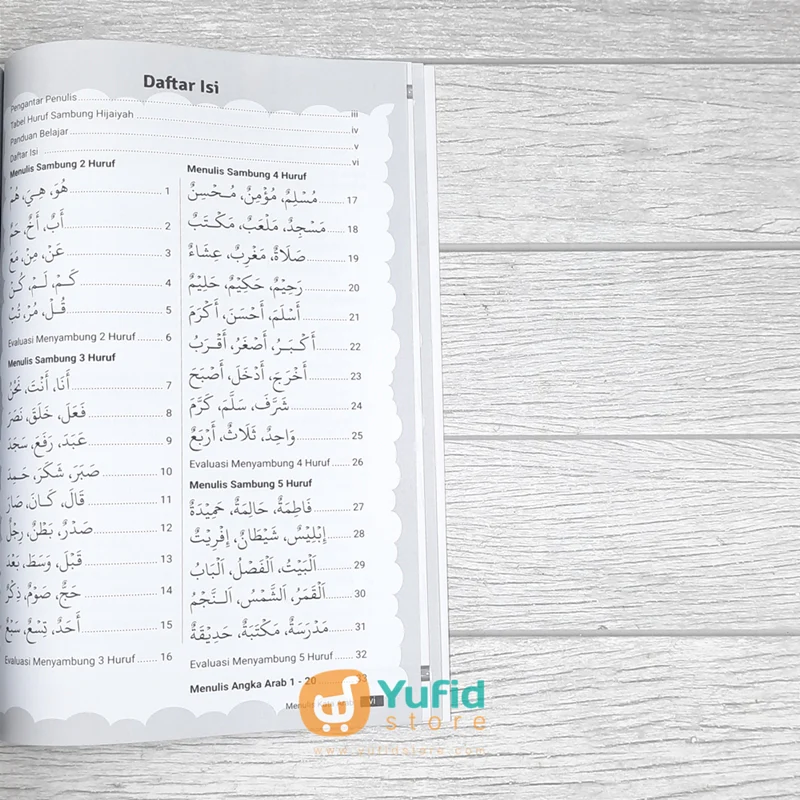 Daftar Isi
Pengantar Penulis ........ iii
Tabel Huruf Sambung Hijaiyah ........ iv
Panduan Belajar ........ v
Daftar Isi ........ vi
Menulis Sambung 2 Huruf
هُوَ، هِيَ، هُمْ ........ 1
أَبٌ، أَخٌ، حَمٌ ........ 2
عَنْ، مِنْ، مَعَ ........ 3
كَمْ، لَمْ، كُنْ ........ 4
قُلْ، مُرْ، تُبْ ........ 5
Evaluasi Menyambung 2 Huruf ........ 6
Menulis Sambung 3 Huruf
أَنَا، أَنْتَ، نَحْنُ ........ 7
فَعَلَ، خَلَقَ، نَصَرَ ........ 8
عَبَدَ، رَفَعَ، سَجَدَ ........ 9
صَبَرَ، شَكَرَ، حَمِدَ ........ 10
قَالَ، كَانَ، صَارَ ........ 11
صَدْرٌ، بَطْنٌ، رِجْلٌ ........ 12
قَبْلَ، وَسَطَ، بَعْدَ ........ 13
حَجٌّ، صَوْمٌ، ذِكْرٌ ........ 14
أَحَدٌ، تِسْعٌ، سَبْعٌ ........ 15
Evaluasi Menyambung 3 Huruf ........ 16
Menulis Sambung 4 Huruf
مُسْلِمٌ، مُؤْمِنٌ، مُحْسِنٌ ........ 17
مَسْجِدٌ، مَلْعَبٌ، مَكْتَبٌ ........ 18
صَلَاةٌ، مَغْرِبٌ، عِشَاءٌ ........ 19
رَحِيْمٌ، حَكِيْمٌ، حَلِيْمٌ ........ 20
أَسْلَمَ، أَحْسَنَ، أَكْرَمَ ........ 21
أَكْبَرُ، أَصْغَرُ، أَقْرَبُ ........ 22
أَخْرَجَ، أَدْخَلَ، أَصْبَحَ ........ 23
شَرَّفَ، سَلَّمَ، كَرَّمَ ........ 24
وَاحِدٌ، ثَلَاثٌ، أَرْبَعٌ ........ 25
Evaluasi Menyambung 4 Huruf ........ 26
Menulis Sambung 5 Huruf
فَاطِمَةُ، حَالِمَةُ، حَمِيْدَةُ ........ 27
إِبْلِيْسُ، شَيْطَانٌ، إِفْرِيْتٌ ........ 28
اَلْبَيْتُ، اَلْفَصْلُ، اَلْبَابُ ........ 29
اَلْقَمَرُ، اَلشَّمْسُ، اَلنَّجْمُ ........ 30
مَدْرَسَةٌ، مَكْتَبَةٌ، حَدِيْقَةٌ ........ 31
Evaluasi Menyambung 5 Huruf ........ 32
Menulis Angka Arab 1 - 20 ........ 33
vi
Yufid
store
www.yufidstore.com